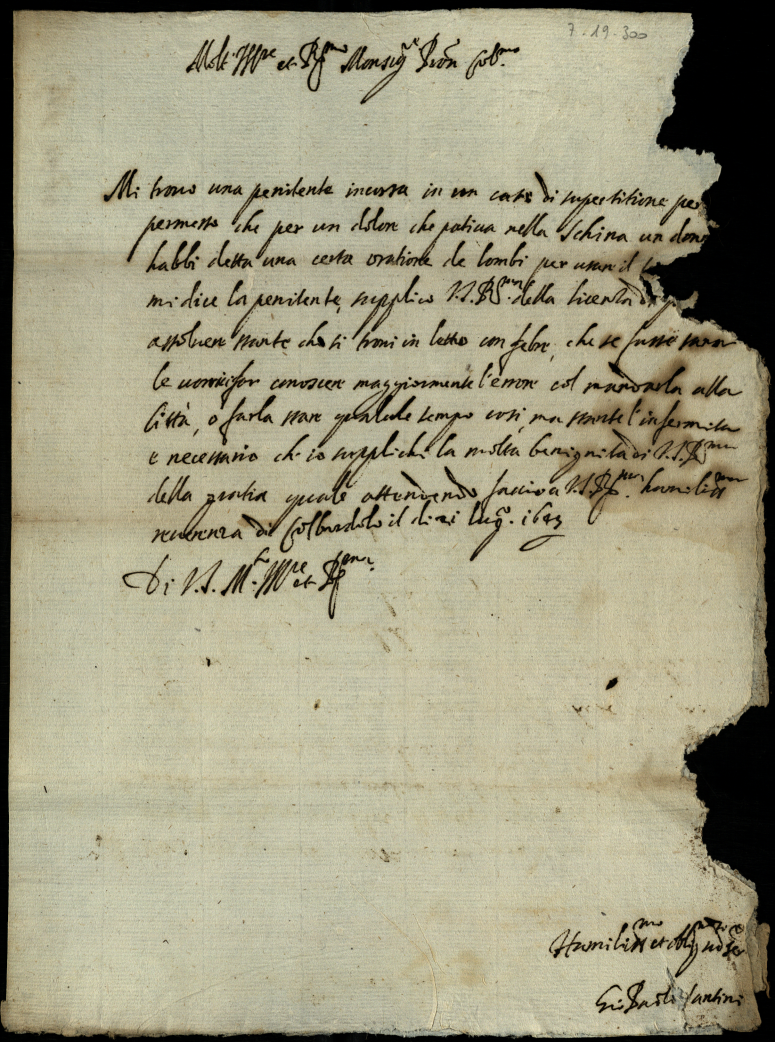 7-19-300
Molt' Ill.re et R.mo Monsig.re P'ron Col.mo
Mi trovo una penitente incorsa in un caso di superstitione per
permesso che per un dolore che pativa nella schina un
habbi detta una certa oratione de lombi per usar il
mi dice la penitente, supplico V.S. R.ma della licenza
assolvere stante che si trovi in letto con febre, che se fusse sana
le vorrei far conoscere maggiormente l'errore col mandarla alla
Città, ò farla stare qualche tempo così, ma stante l'infermità
è necessario ch'io supplichi la molta benignità di V.S. R.ma
della gratia quale attendendo faccio a V.S. R.ma humiliss.ma
reverenza di Colbordolo il di 21 lug.o 1643
Di V.S. M.to Ill.re et R.ma
Humiliss.mo et obblig.mo ser
Gio Paolo Santini